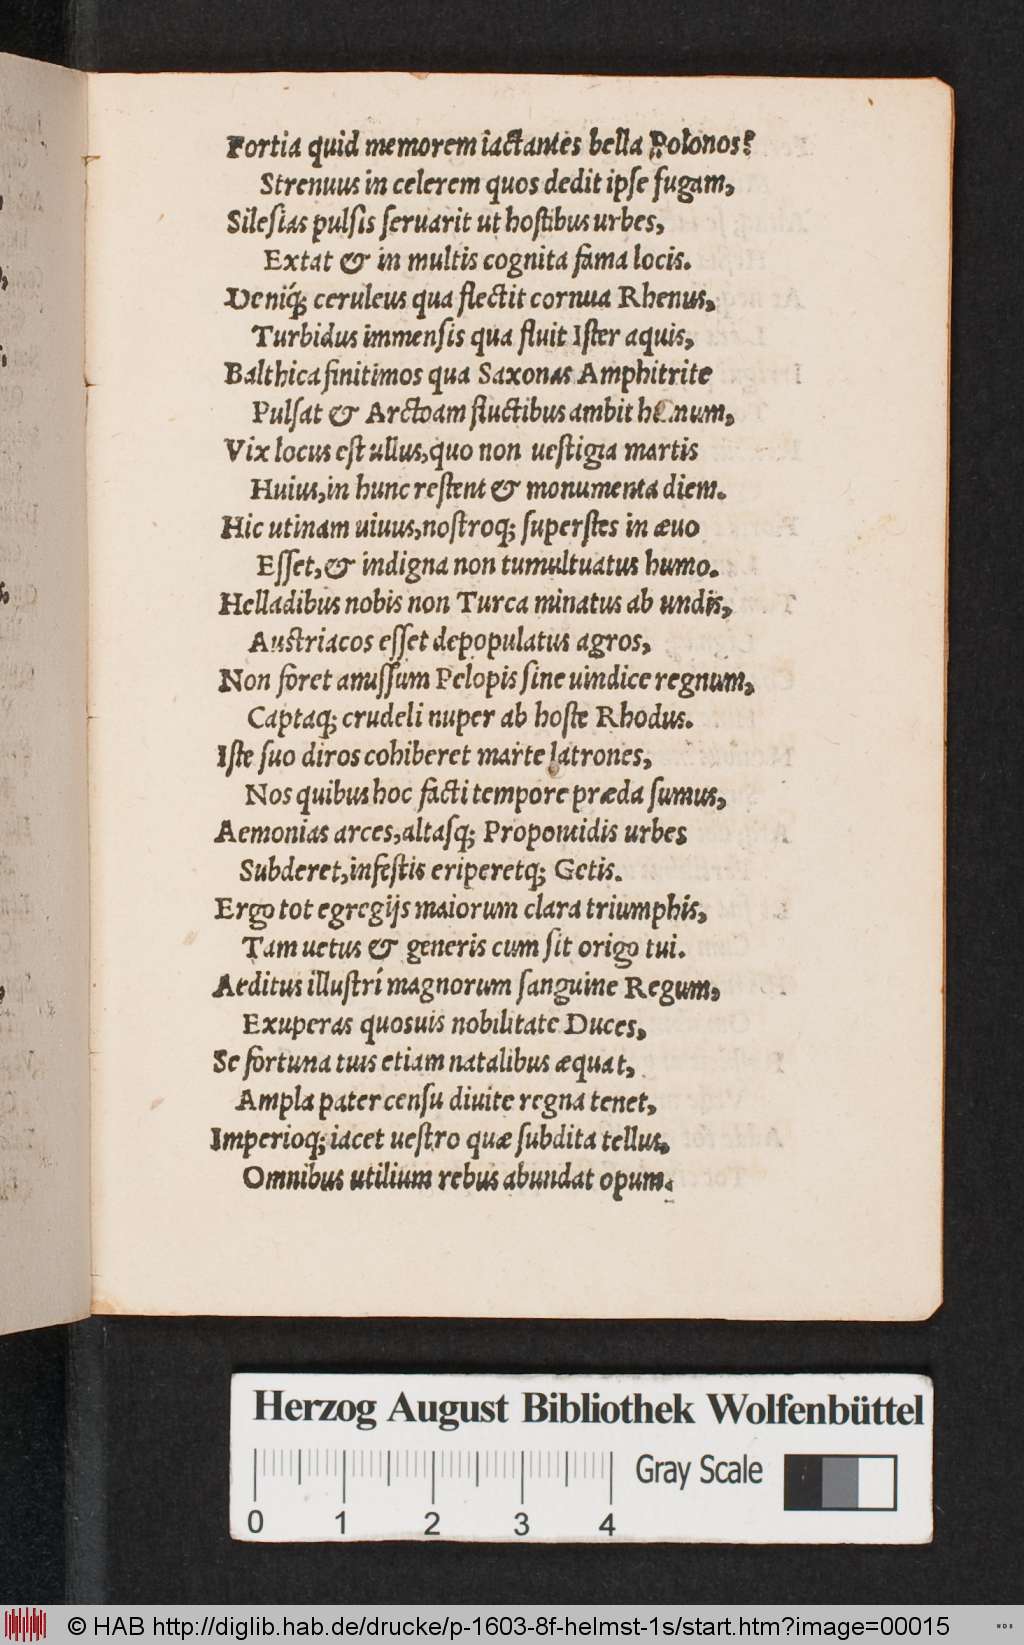 Fortia quid memorem iactantes bella Polonos?
Strenuus in celerem quos dedit ipſe fugam,
Sileſias pulſis ſeruarit ut hoſtibus urbes,
Extat & in multis cognita fama locis.
Deniq́; ceruleus qua flectit cornua Rhenus,
Turbidus immenſis qua fluit Iſter aquis,
Balthica finitimos qua Saxonas Amphitrite
Pulſat & Arctoam fluctibus ambit humum,
Vix locus eſt ullus, quo non ueſtigia martis
Huius, in hunc reſtent & monumenta diem.
Hic utinam uiuus, noſtroq; ſuperſtes in æuo
Eſſet, & indigna non tumultuatus humo.
Helladibus nobis non Turca minatus ab undis,
Auſtriacos eſſet depopulatus agros,
Non foret amiſſum Pelopis ſine uindice regnum,
Captaq; crudeli nuper ab hoſte Rhodus.
Iſte ſuo diros cohiberet marte latrones,
Nos quibus hoc facti tempore præda ſumus,
Aemonias arces, altaſq; Propontidis urbes
Subderet, infeſtis eriperetq; Getis.
Ergo tot egregijs maiorum clara triumphis,
Tam uetus & generis cum ſit origo tui.
Aeditus illuſtri magnorum ſanguine Regum,
Exuperas quosuis nobilitate Duces,
Se fortuna tuis etiam natalibus æquat,
Ampla pater cenſu diuite regna tenet,
Imperioq; iacet ueſtro quæ ſubdita tellus,
Omnibus utilium rebus abundat opum.
Herzog August Bibliothek Wolfenbüttel
Gray Scale
0 1 2 3 4
© HAB http://diglib.hab.de/drucke/p-1603-8f-helmst-1s/start.htm?image=00015